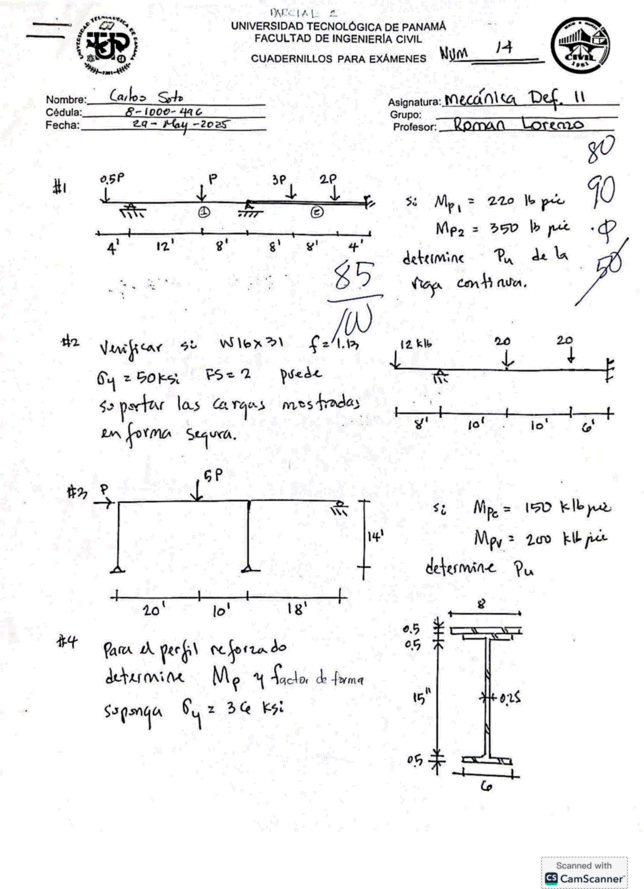 PARCIAL 2
UNIVERSIDAD TECNOLÓGICA DE PANAMÁ
FACULTAD DE INGENIERÍA CIVIL
CUADERNILLOS PARA EXÁMENES NUM 14
CIVIL
Nombre: Carlos Soto
Cédula: 8-1000-496
Fecha: 29-May-2025
Asignatura: Mecánica Def. II
Grupo:
Profesor: Roman Lorenzo
80
90
50
85
100
#1
0.5P P 3P 2P
1 2
4' 12' 8' 8' 8' 4'
si Mp1 = 220 lb pie
Mp2 = 350 lb pie
determine Pu de la
viga continua.
#2 Verificar si W16x31 f=1.13
σy = 50ksi FS=2 puede
soportar las cargas mostradas
en forma segura.
12 klb 20 20
8' 10' 10' 6'
#3 P 5P
14'
20' 10' 18'
si Mpc = 150 klb pie
Mpv = 200 klb pie
determine Pu
#4 Para el perfil reforzado
determine Mp y factor de forma
suponga σy = 36 ksi
8
0.5
0.5
15" 0.25
0.5
6
Scanned with
CS CamScanner